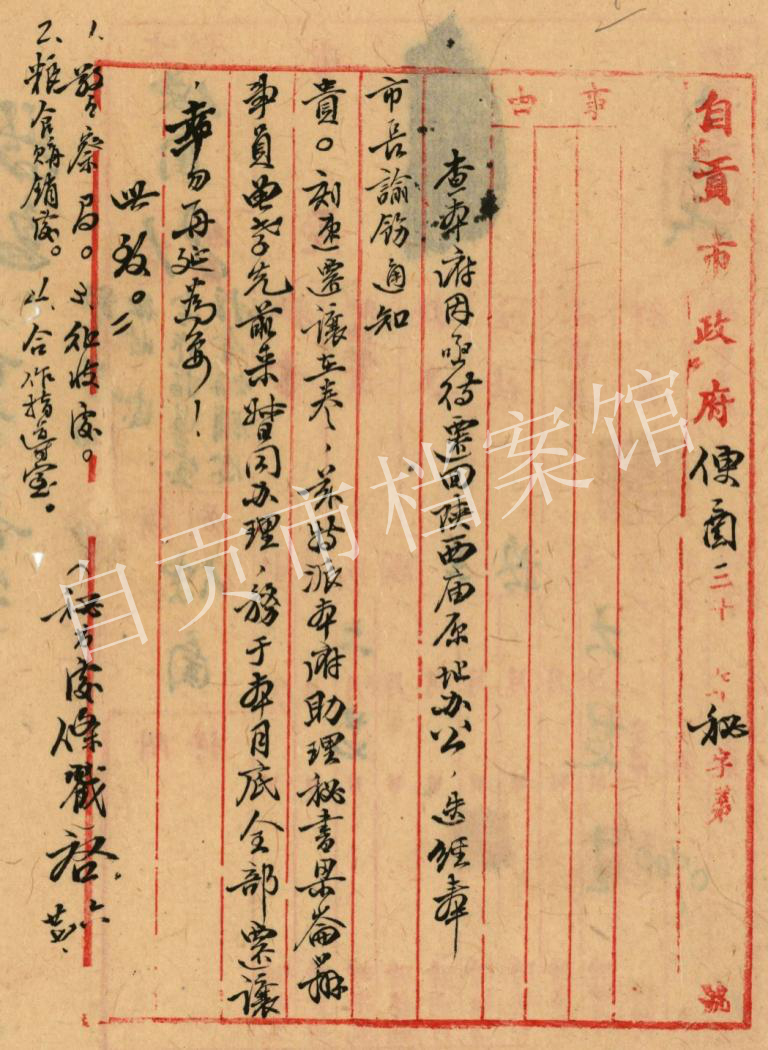 自貢市政府便函三十 秘字第 號
事由
查本府因亟待遷回陝西庙原址办公，迭經奉
市長諭飭通知
貴。刻速遷讓在卷，兹特派本府助理秘書梁崙
事員 先前来 同办理，務于本月底全部遷讓
，幸勿再延為要！
此致。
1、警察局。3、征收處。
2、粮食購銷處。4、合作指導室。
秘書處條戳 啓 六
自贡市档案馆